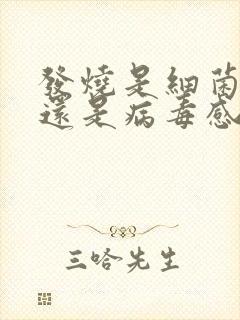 發燒是細菌
還是病毒感
三哈先生